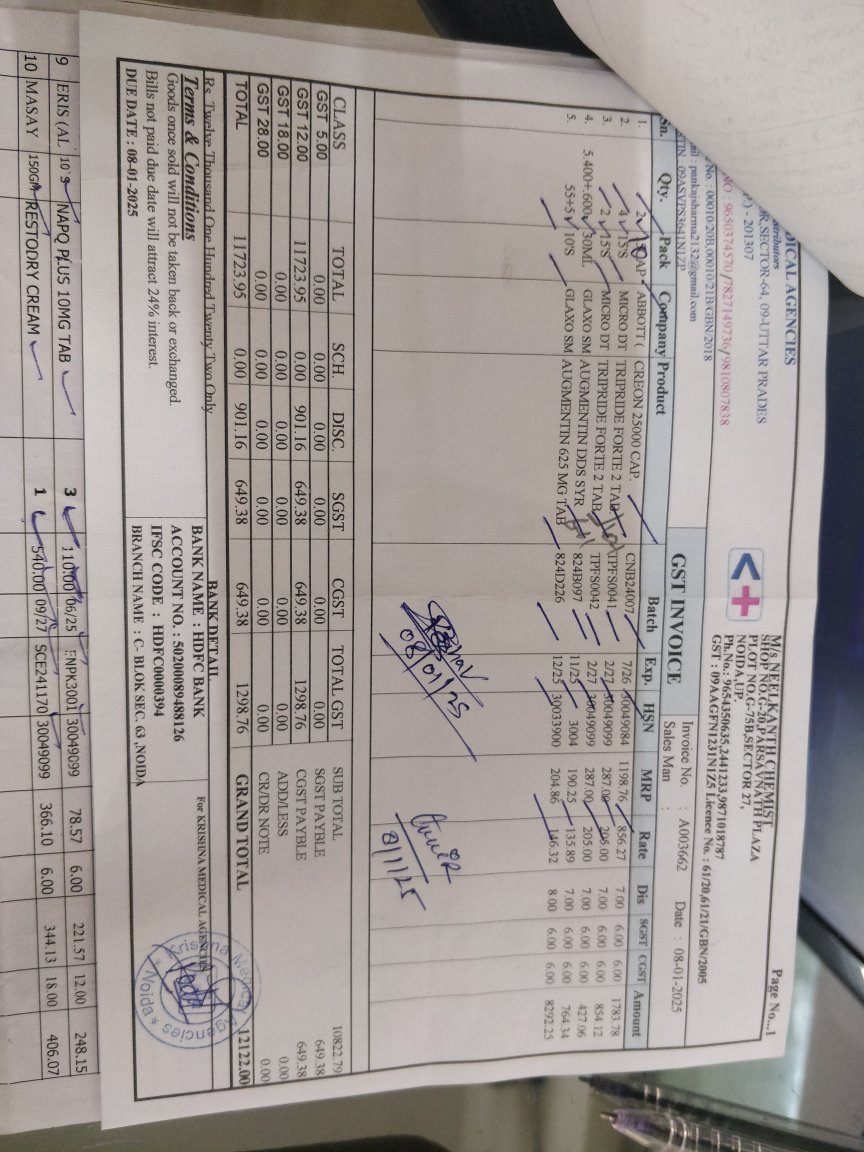 DICAL AGENCIES
stributors
R,SECTOR-64, 09-UTTAR PRADES
.) - 201307
NO : 9650374570/7827149736/9810807838
No. : 00010/20B,00010/21B/GBN/2018
ail : pankajsharma2132@gmail.com
STIN : 09ASVPS3641N1ZP
Page No...1
M/s NEELKANTH CHEMIST
SHOP NO.G-20,PARSAVNATH PLAZA
PLOT NO.G-75B,SECTOR 27,
NOIDA,UP.
Ph.No.: 9654350635,2441233,9871018787
GST : 09AAGFN1231N1Z5 Licence No. : 61/20,61/21/GBN/2005
GST INVOICE
Invoice No. : A003662 Date : 08-01-2025
Sales Man :
Sn. Qty. Pack Company Product Batch Exp. HSN MRP Rate Dis SGST CGST Amount
1. 2 ABBOTT ( CREON 25000 CAP. CNB24007 7/26 30049084 1198.76 856.27 7.00 6.00 6.00 1783.78
2. 4 15'S MICRO DT TRIPRIDE FORTE 2 TAB TPFS0041 2/27 30049099 287.00 205.00 7.00 6.00 6.00 854.12
3. 2 15'S MICRO DT TRIPRIDE FORTE 2 TAB TPFS0042 2/27 30049099 287.00 205.00 7.00 6.00 6.00 427.06
4. 5.400+.600 30ML GLAXO SM AUGMENTIN DDS SYR 824B097 11/25 3004 190.25 135.89 7.00 6.00 6.00 764.34
5. 55+5 10'S GLAXO SM AUGMENTIN 625 MG TAB 824D226 12/25 30033900 204.86 146.32 8.00 6.00 6.00 8292.25
08/01/25
8/1/25
CLASS TOTAL SCH. DISC. SGST CGST TOTAL GST
GST 5.00 0.00 0.00 0.00 0.00 0.00 0.00
GST 12.00 11723.95 0.00 901.16 649.38 649.38 1298.76
GST 18.00 0.00 0.00 0.00 0.00 0.00 0.00
GST 28.00 0.00 0.00 0.00 0.00 0.00 0.00
TOTAL 11723.95 0.00 901.16 649.38 649.38 1298.76
SUB TOTAL 10822.79
SGST PAYBLE 649.38
CGST PAYBLE 649.38
ADD/LESS 0.00
CR/DR NOTE 0.00
GRAND TOTAL 12122.00
Rs. Twelve Thousand One Hundred Twenty Two Only
Terms & Conditions
Goods once sold will not be taken back or exchanged.
Bills not paid due date will attract 24% interest.
DUE DATE : 08-01-2025
BANK DETAIL
BANK NAME : HDFC BANK
ACCOUNT NO. : 50200089488126
IFSC CODE : HDFC0000394
BRANCH NAME : C- BLOK SEC. 63 ,NOIDA
For KRISHNA MEDICAL AGENCIES
Krishna Medical Agencies
* Noida *
9 ERIS (AL 10'S NAPQ PLUS 10MG TAB 3 110.00 06/25 ENPK3001 30049099 78.57 6.00 221.57 12.00 248.15
10 MASAY 150GM RESTODRY CREAM 1 540.00 09/27 SCE241170 30049099 366.10 6.00 344.13 18.00 406.07